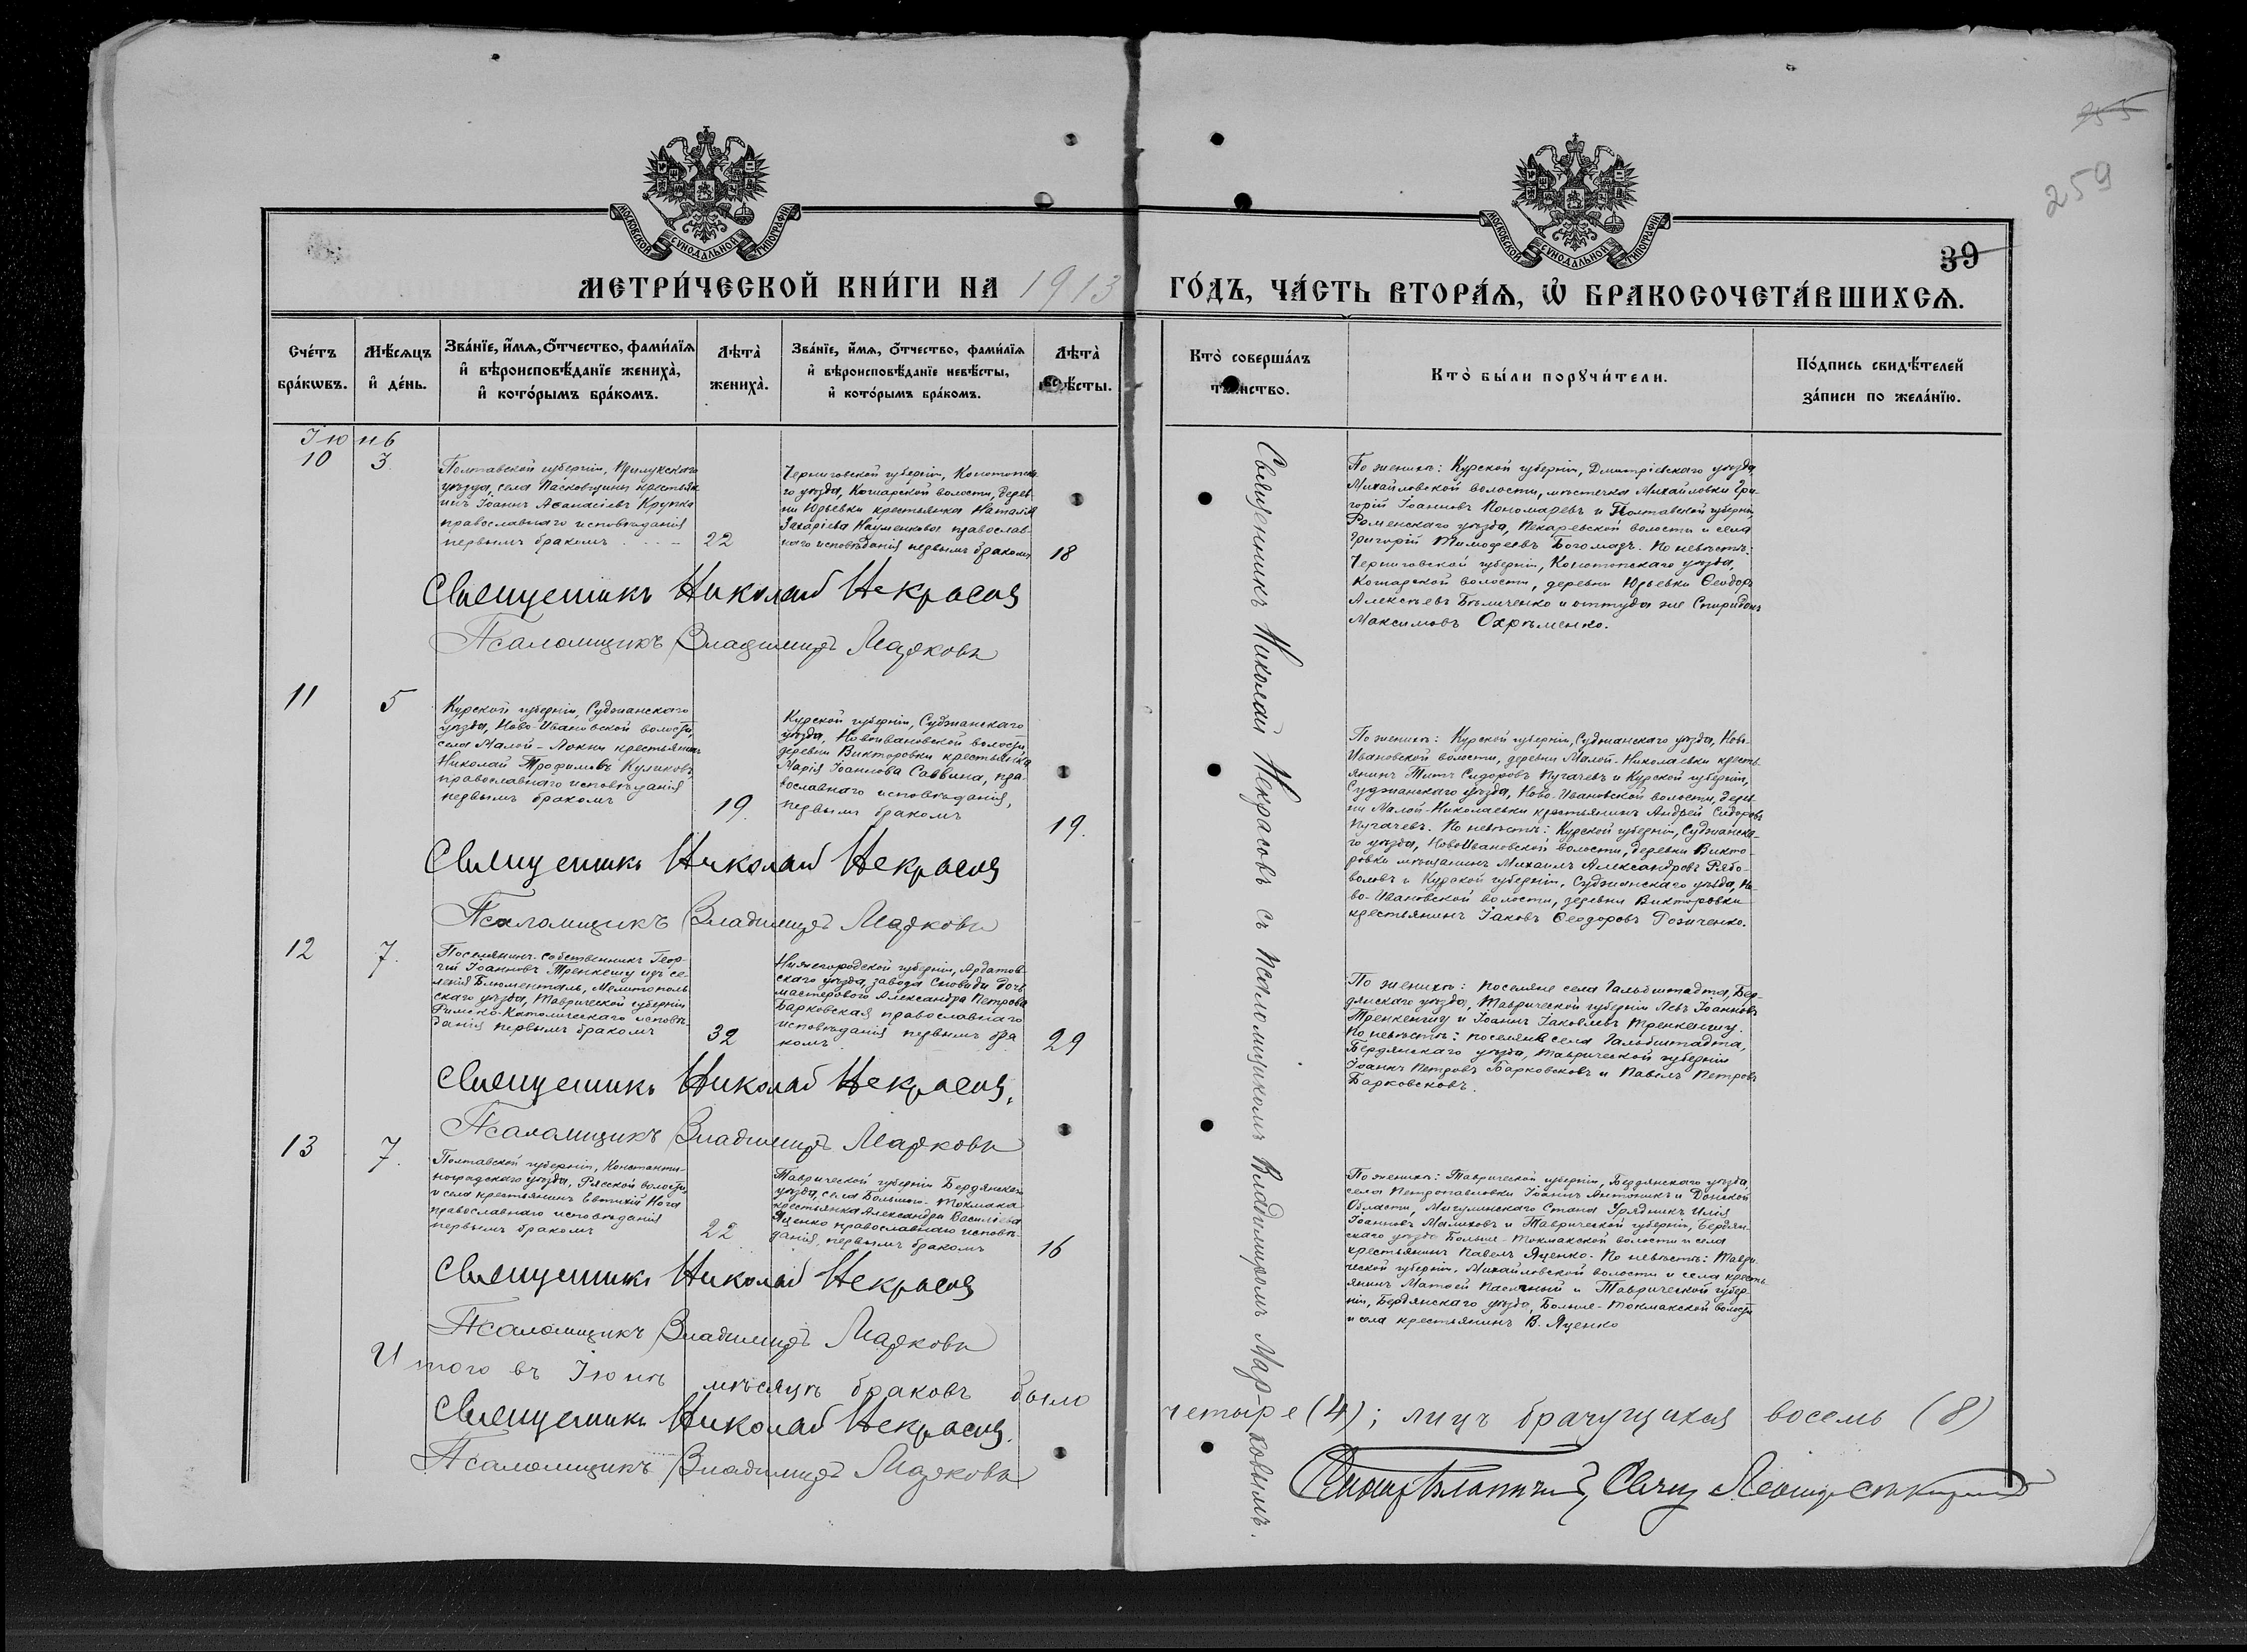 255
259
МОСКОВСКОЙ СУНОДАЛЬНОЙ ТИПОГРАФІИ
МОСКОВСКОЙ СУНОДАЛЬНОЙ ТИПОГРАФІИ
39
МЕТРИ́ЧЕСКОЙ КНИ́ГИ НА 1913
ГО́ДЪ, ЧА́СТЬ ВТОРА́Ѧ, Ѽ БРАКОСОЧЕТА́ВШИХСѦ.
Сче́тъ бра́кѡвъ.
Мѣ́сѧцъ и҆ де́нь.
Зва́нїе, и҆́мѧ, ѻ҆́тчество, фами́лїѧ и҆ вѣроисповѣ́данїе жениха̀, и҆ кото́рымъ бра́комъ.
Лѣта̀ жениха̀.
Зва́нїе, и҆́мѧ, ѻ҆́тчество, фами́лїѧ и҆ вѣроисповѣ́данїе невѣ́сты, и҆ кото́рымъ бра́комъ.
Лѣта̀ невѣ́сты.
Кто̀ соверша́лъ та́инство.
Кто̀ бы́ли порꙋчи́тели.
По́дпись свидѣ́телей за́писи по жела́нїю.
Іюнь
10
3
Полтавской губерніи, Прилукскаго
уѣзда, села Пасковщины крестьян
инъ Іоаннъ Аѳанасіевъ Крупка
православнаго исповѣданія
первымъ бракомъ
22
Черниговской губерніи, Конотопска-
го уѣзда, Кошарской волости, дерев-
ни Юрьевки крестьянка Наталія
Захаріева Науменкова православ-
наго исповѣданія первымъ бракомъ
18
Священникъ Николай Некрасовъ
Псаломщикъ Владимиръ Марковъ
По женихѣ: Курской губерніи, Дмитріевскаго уѣзда,
Михайловской волости, мѣстечка Михайловки Гри-
горій Іоанновъ Пономаревъ и Полтавской губерніи,
Роменскаго уѣзда, Пекаревской волости и села
Григорій Тимофеевъ Богомазъ. По невѣстѣ:
Черниговской губерніи, Конотопскаго уѣзда,
Кошарской волости, деревни Юрьевки Ѳеодоръ
Алексѣевъ Бѣличенко и оттуда же Спиридонъ
Максимовъ Охрѣменко.
11
5
Курской губерніи, Суджанскаго
уѣзда, Ново-Ивановской волости,
села Малой-Локни крестьянинъ
Николай Трофимовъ Куликовъ
православнаго исповѣданія
первымъ бракомъ
19.
Курской губерніи, Суджанскаго
уѣзда, Новоивановской волости,
деревни Викторовки крестьянка
Марія Іоаннова Саввина, пра-
вославнаго исповѣданія,
первымъ бракомъ
19.
Священникъ Николай Некрасовъ
Псаломщикъ Владимиръ Марковъ
По женихѣ: Курской губерніи, Суджанскаго уѣзда, Ново-
Ивановской волости, деревни Малой-Николаевки кресть-
янинъ Титъ Сидоровъ Пугачевъ и Курской губерніи,
Суджанскаго уѣзда, Ново-Ивановской волости, дерев-
ни Малой-Николаевки крестьянинъ Андрей Сидоровъ
Пугачевъ. По невѣстѣ: Курской губерніи, Суджанска-
го уѣзда, НовоИвановской волости, деревни Викто-
ровки мѣщанинъ Михаилъ Александровъ Рябо-
воловъ и Курской губерніи, Суджанскаго уѣзда, Но-
во-Ивановской волости, деревни Викторовки
крестьянинъ Іаковъ Ѳеодоровъ Розиченко.
12
7.
Поселянинъ-собственникъ Геор-
гій Іоанновъ Тренкеншу изъ се-
ленія Блюменталь, Мелитополь
скаго уѣзда, Таврической губерніи
Римско-Католическаго исповѣ-
данія первымъ бракомъ
32
Нижегородской губерніи, Ардатов-
скаго уѣзда, завода Сноведи дочь
мастерового Александра Петрова
Барковская православнаго
исповѣданія первымъ бра
комъ
29
Священникъ Николай Некрасовъ.
Псаломщикъ Владимиръ Марковъ
По женихѣ: поселяне села Гальбштадта, Бер-
дянскаго уѣзда, Таврической губерніи Левъ Іоанновъ
Тренкеншу и Іоаннъ Іаковлевъ Тренкеншу.
По невѣстѣ: поселяне села Гальбштадта,
Бердянскаго уѣзда, Таврической губерніи
Іоаннъ Петровъ Барковсковъ и Павелъ Петровъ
Барковсковъ.
13
7.
Полтавской губерніи, Константи-
ноградскаго уѣзда, Рясской волости
и села крестьянинъ Евтихій Нога
православнаго исповѣданія
первымъ бракомъ
22
Таврической губерніи Бердянскаго
уѣзда, села Большого-Токмака
крестьянка Александра Василіева
Яценко православнаго исповѣ-
данія, первымъ бракомъ
16
Священникъ Николай Некрасовъ
Псаломщикъ Владимиръ Марковъ
По женихѣ: Таврической губерніи, Бердянскаго уѣзда,
села Петропавловки Іоаннъ Антоникъ и Донской
Области, Мигулинскаго Стана Урядникъ Илія
Іоанновъ Малиховъ и Таврической губерніи, Бердян-
скаго уѣзда Больше-Токмакской волости и села
крестьянинъ Павелъ Яценко. По невѣстѣ: Таври-
ческой губерніи, Михайловской волости и села кресть-
янинъ Матѳей Пасѣчный и Таврической губер-
ніи, Бердянскаго уѣзда, Больше-Токмакской волости
и села крестьянинъ В. Яценко
Священникъ Николай Некрасовъ съ псаломщикомъ Владимиромъ Мар-ковымъ.
Итого въ Іюнѣ мѣсяцѣ браковъ было четыре (4); лицъ брачущихся восемь (8)
Священникъ Николай Некрасовъ.
Псаломщикъ Владимиръ Марковъ